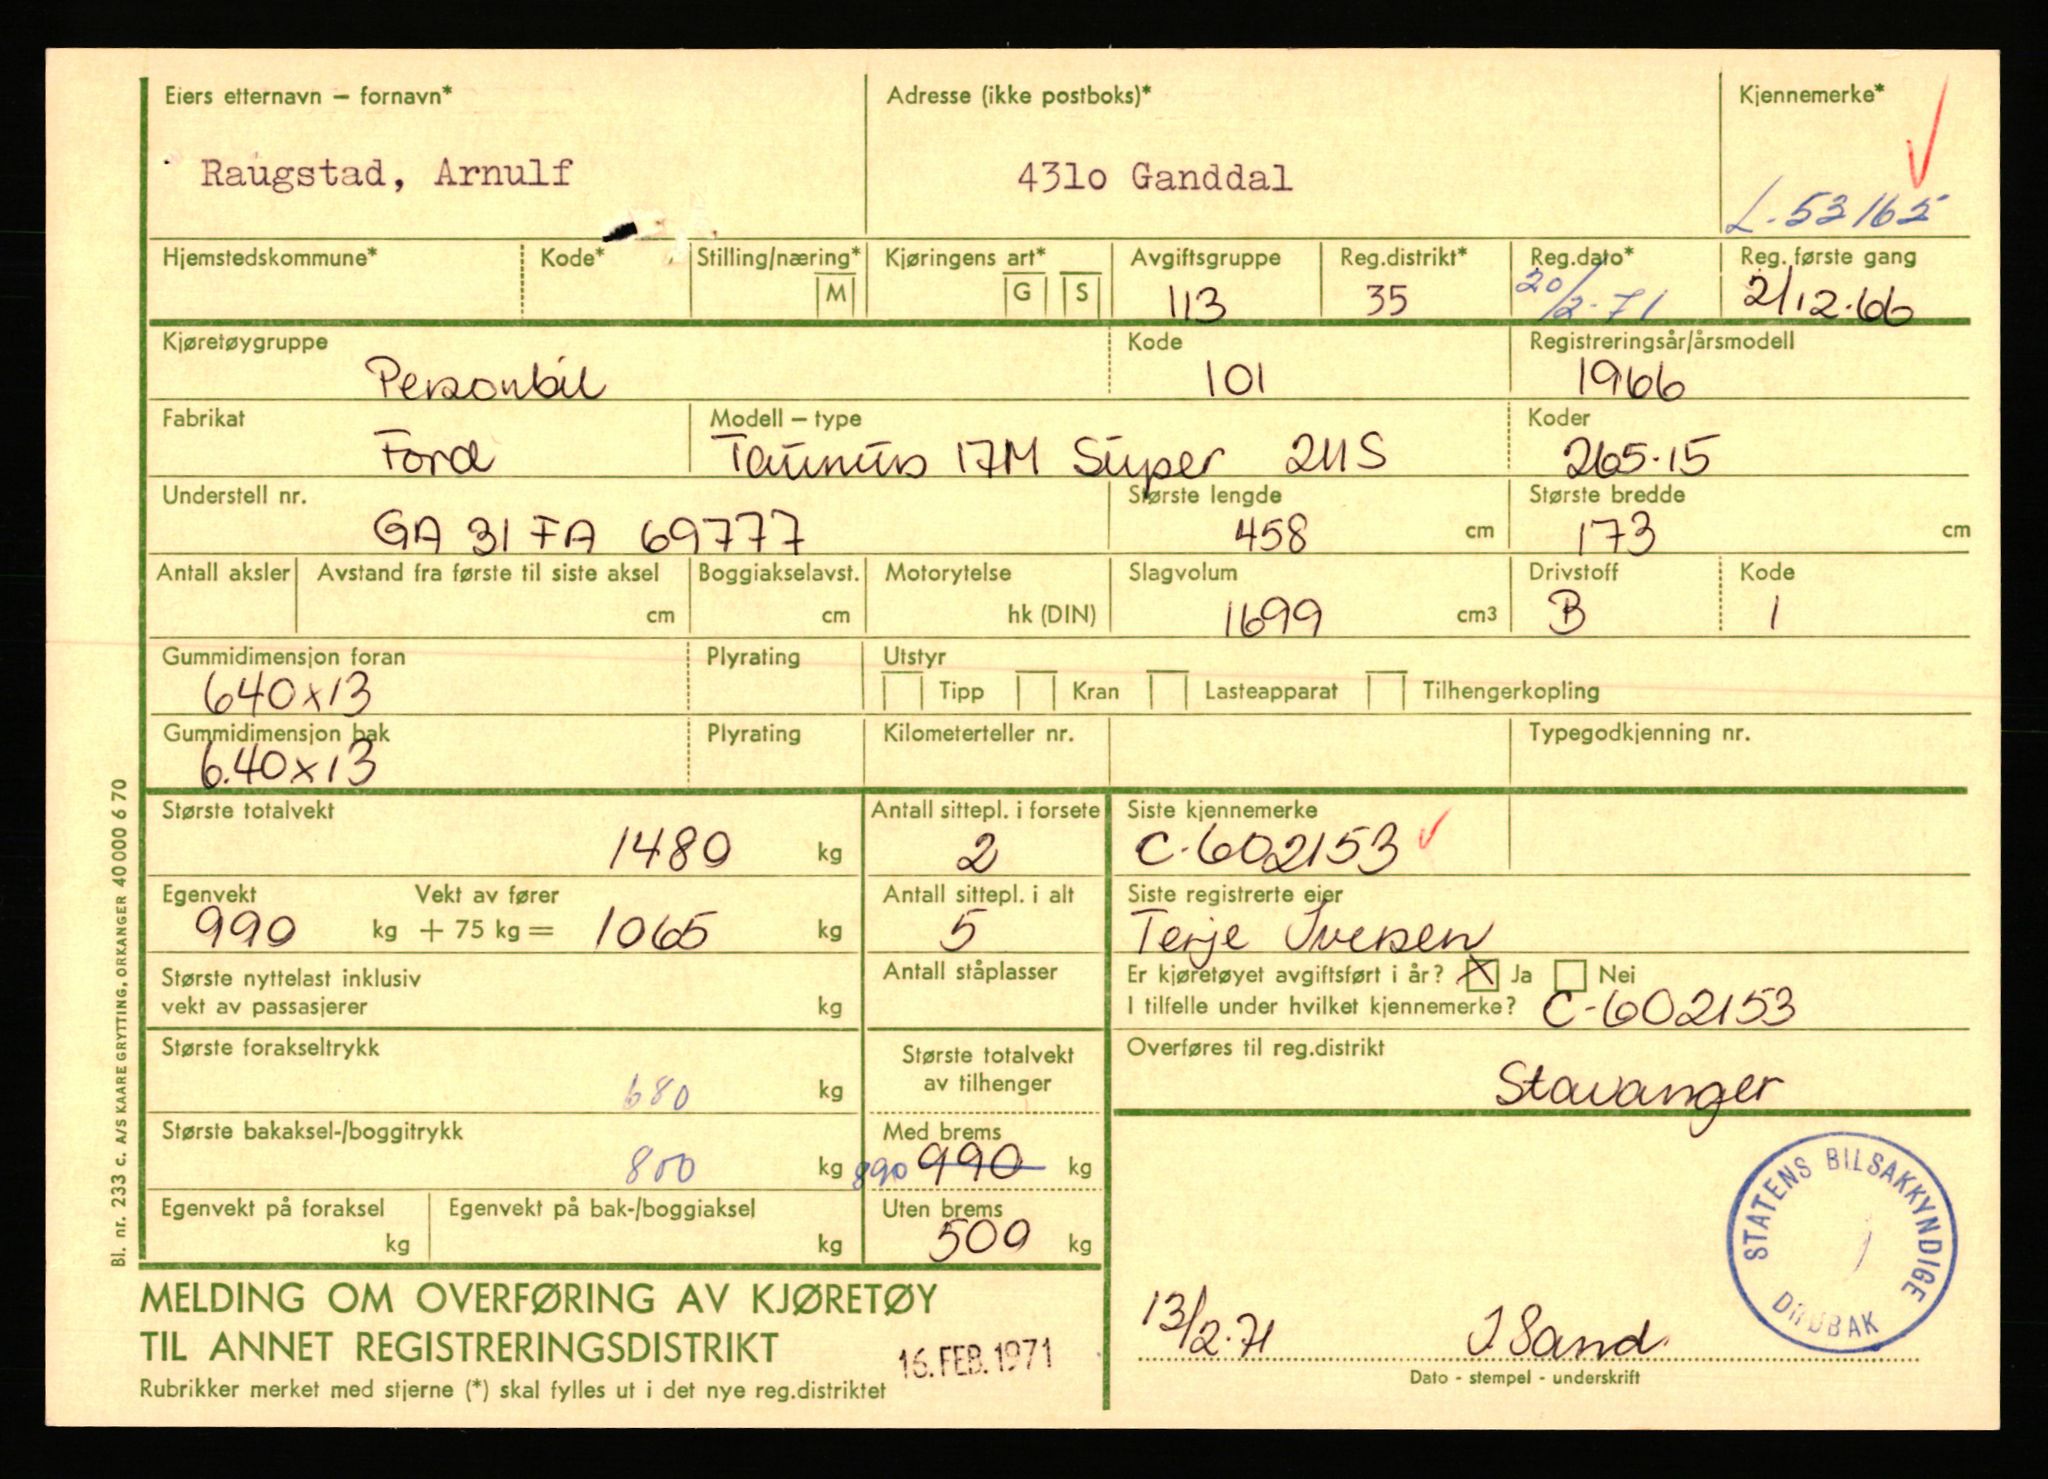 Eiers etternavn – fornavn*
Raugstad, Arnulf
Adresse (ikke postboks)*
4310 Ganddal
Kjennemerke*
L-53165
Hjemstedskommune*
Kode*
Stilling/næring*
M
Kjøringens art*
G S
Avgiftsgruppe
113
Reg.distrikt*
35
Reg.dato*
20/2-71
Reg. første gang
2/12.66
Kjøretøygruppe
Personbil
Kode
101
Registreringsår/årsmodell
1966
Fabrikat
Ford
Modell – type
Taunus 17M Super 21S
Koder
265.15
Understell nr.
GA 31 FA 69777
Største lengde
458 cm
Største bredde
173 cm
Antall aksler
Avstand fra første til siste aksel
cm
Boggiakselavst.
cm
Motorytelse
hk (DIN)
Slagvolum
1699 cm3
Drivstoff
B
Kode
1
Gummidimensjon foran
640x13
Plyrating
Utstyr
Tipp Kran Lasteapparat Tilhengerkopling
Gummidimensjon bak
6.40x13
Plyrating
Kilometerteller nr.
Typegodkjenning nr.
Største totalvekt
1480 kg
Antall sittepl. i forsete
2
Siste kjennemerke
C-602153
Egenvekt Vekt av fører
990 kg + 75 kg = 1065 kg
Antall sittepl. i alt
5
Siste registrerte eier
Terje Iversen
Største nyttelast inklusiv
vekt av passasjerer kg
Antall ståplasser
Er kjøretøyet avgiftsført i år? X Ja Nei
I tilfelle under hvilket kjennemerke? C-602153
Største forakseltrykk
680 kg
Største totalvekt
av tilhenger
Overføres til reg.distrikt
Stavanger
Største bakaksel-/boggitrykk
800 kg
Med brems
890 990 kg
Egenvekt på foraksel
kg
Egenvekt på bak-/boggiaksel
kg
Uten brems
500 kg
STATENS BILSAKKYNDIGE
DRØBAK
MELDING OM OVERFØRING AV KJØRETØY
TIL ANNET REGISTRERINGSDISTRIKT
16. FEB. 1971
Rubrikker merket med stjerne (*) skal fylles ut i det nye reg.distriktet
13/2.71 I Sand
Dato - stempel - underskrift
Bl. nr. 233 c. A/S KAARE GRYTTING, ORKANGER 40 000 6 70